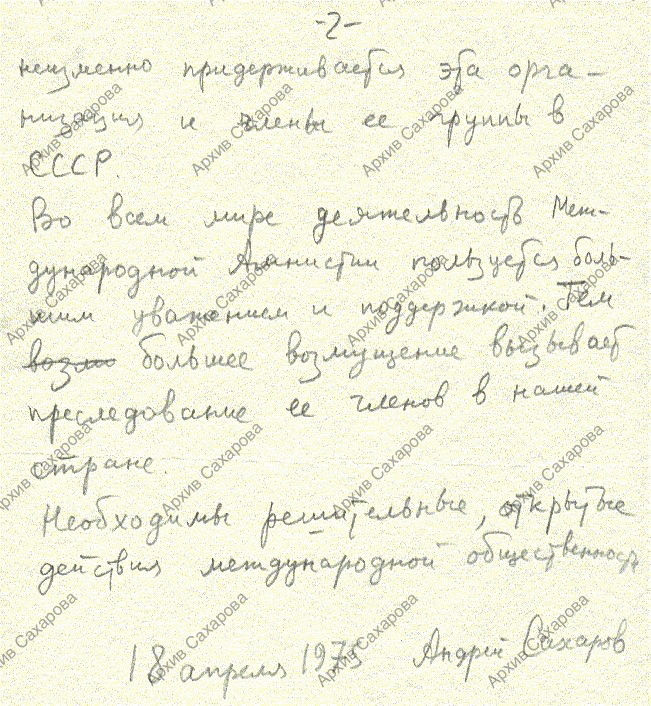 -2-
неизменно придерживается эта орга-
низация и члены ее группы в
СССР.
Во всем мире деятельность Меж-
дународной Амнистии пользуется боль-
шим уважением и поддержкой. Тем
возму большее возмущение вызывает
преследование ее членов в нашей
стране.
Необходимы решительные, открытые
действия международной общественности
18 апреля 1975 Андрей Сахаров
Архив Сахарова